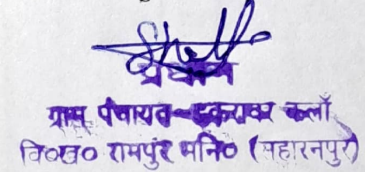 प्रधान
ग्राम पंचायत कलाँ
वि०ख० रामपुर मनि० (सहारनपुर)